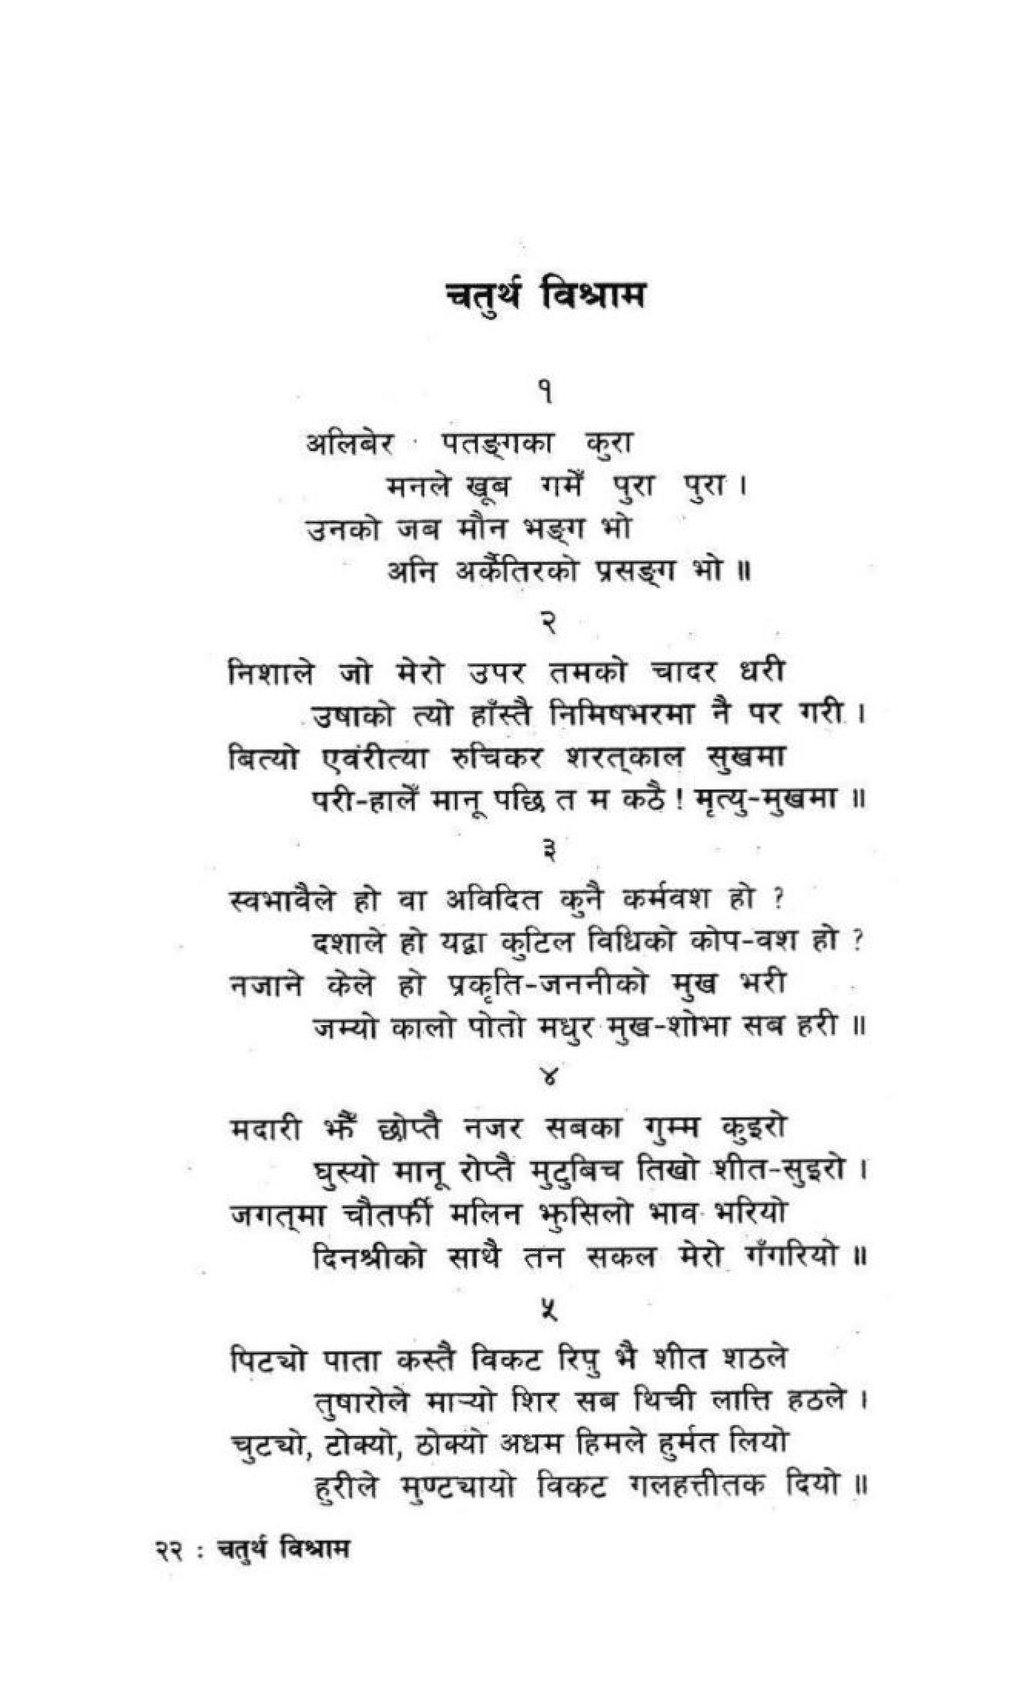 चतुर्थ विश्राम
१
अलिबेर पतङ्गका कुरा
मनले खूब गमेँ पुरा पुरा ।
उनको जब मौन भङ्ग भो
अनि अर्कैतिरको प्रसङ्ग भो ॥
२
निशाले जो मेरो उपर तमको चादर धरी
उषाको त्यो हाँस्तै निमिषभरमा नै पर गरी ।
बित्यो एवंरीत्या रुचिकर शरत्काल सुखमा
परी-हालेँ मानू पछि त म कठै ! मृत्यु-मुखमा ॥
३
स्वभावैले हो वा अविदित कुनै कर्मवश हो ?
दशाले हो यद्वा कुटिल विधिको कोप-वश हो ?
नजाने केले हो प्रकृति-जननीको मुख भरी
जम्यो कालो पोतो मधुर मुख-शोभा सब हरी ॥
४
मदारी झैँ छोप्तै नजर सबका गुम्म कुइरो
घुस्यो मानू रोप्तै मुटुबिच तिखो शीत-सुइरो ।
जगत्मा चौतर्फी मलिन झुसिलो भाव भरियो
दिनश्रीको साथै तन सकल मेरो गँगरियो ॥
५
पिट्यो पाता कस्तै विकट रिपु भै शीत शठले
तुषारोले मार्‍यो शिर सब थिची लात्ति हठले ।
चुट्यो, टोक्यो, ठोक्यो अधम हिमले हुर्मत लियो
हुरीले मुण्ट्यायो विकट गलहत्तीतक दियो ॥
२२ : चतुर्थ विश्राम